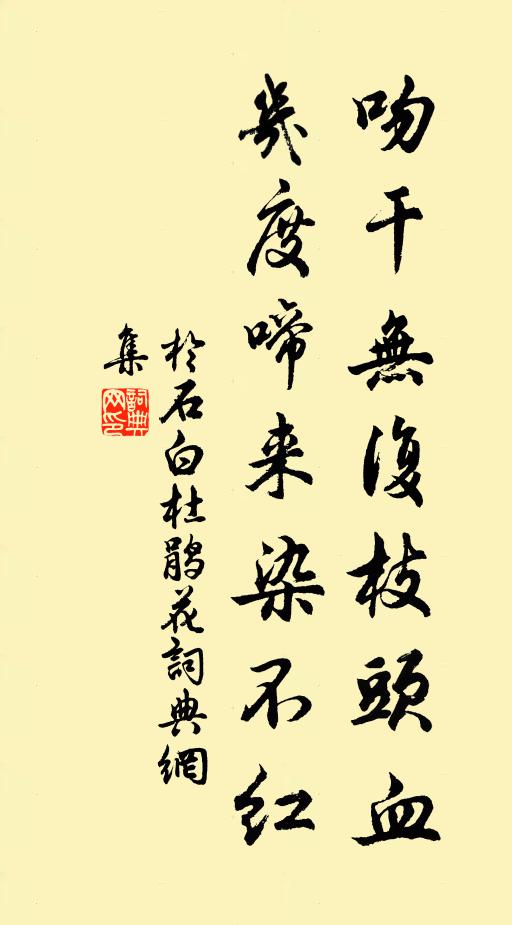 吻干無復枝頭血
幾度啼来染不紅
於石白杜鵑花詞典網
集
詞典
网印